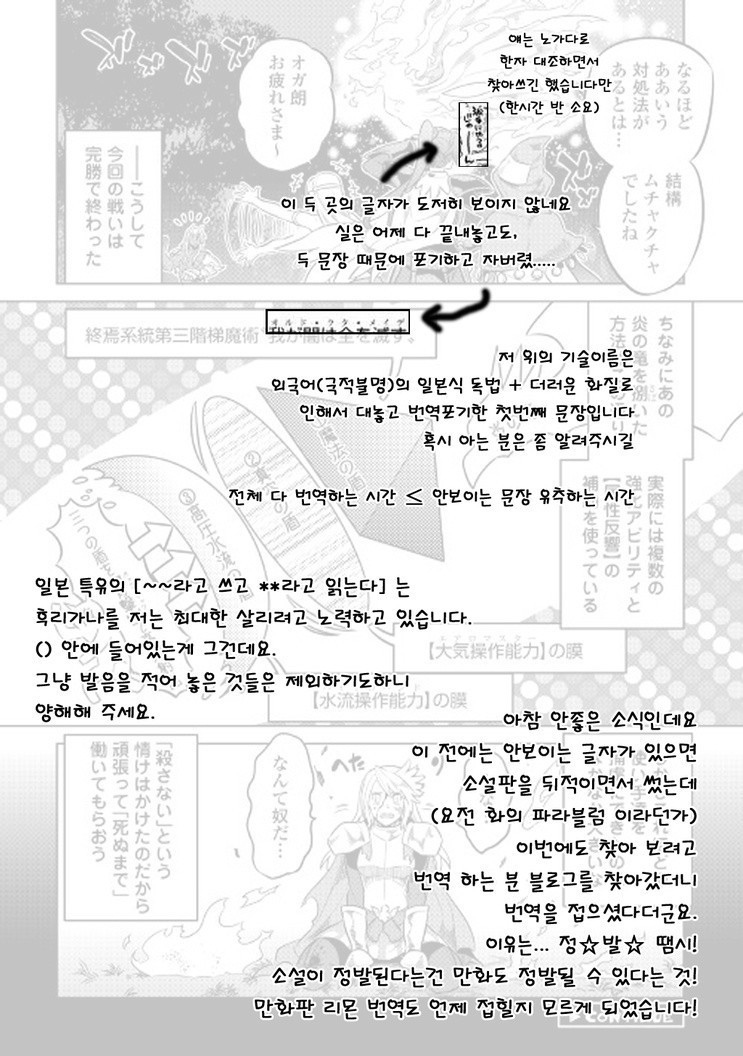 얘는 노가다로
한자 대조하면서
찾아쓰긴 했습니다만
(한시간 반 소요)
이 두 곳의 글자가 도저히 보이지 않네요
실은 어제 다 끝내놓고도,
두 문장 때문에 포기하고 자버렸.....
なるほど
ああいう
対処法が
あるとは…
結構
ムチャクチャ
でしたね
オガ朗
お疲れさま～
――こうして
今回の戦いは
完勝で終わった
オルド・ウタ・メイゲ
終焉系統第三階梯魔術“我が闇は全を滅す。
저 위의 기술이름은
외국어(국적불명)의 일본식 독법 + 더러운 화질로
인해서 대놓고 번역포기한 첫번째 문장입니다
혹시 아는 분은 좀 알려주시길
전체 다 번역하는 시간 ≤ 안보이는 문장 유추하는 시간
ちなみにあの
炎の竜を捌いた
実際には複数の
強化アビリティと
の
補正を使っている
③高圧水流の
일본 특유의 [~~라고 쓰고 **라고 읽는다] 는
후리가나를 저는 최대한 살리려고 노력하고 있습니다.
() 안에 들어있는게 그건데요.
그냥 발음을 적어 놓은 것들은 제외하기도하니
양해해 주세요.
エアロマスター
【大気操作能力】の膜
【水流操作能力】の膜
아참 안좋은 소식인데요
이 전에는 안보이는 글자가 있으면
소설판을 뒤적이면서 썼는데
(요전 화의 파라블럼 이라던가)
이번에도 찾아 보려고
번역 하는 분 블로그를 찾아갔더니
번역을 접으셨다더군요.
이유는... 정☆발☆ 땜시!
소설이 정발된다는건 만화도 정발될 수 있다는 것!
만화판 리몬 번역도 언제 접힐지 모르게 되었습니다!
なんて奴だ…
「殺さない」という
情けはかけたのだから
頑張って「死ぬまで」
働いてもらおう